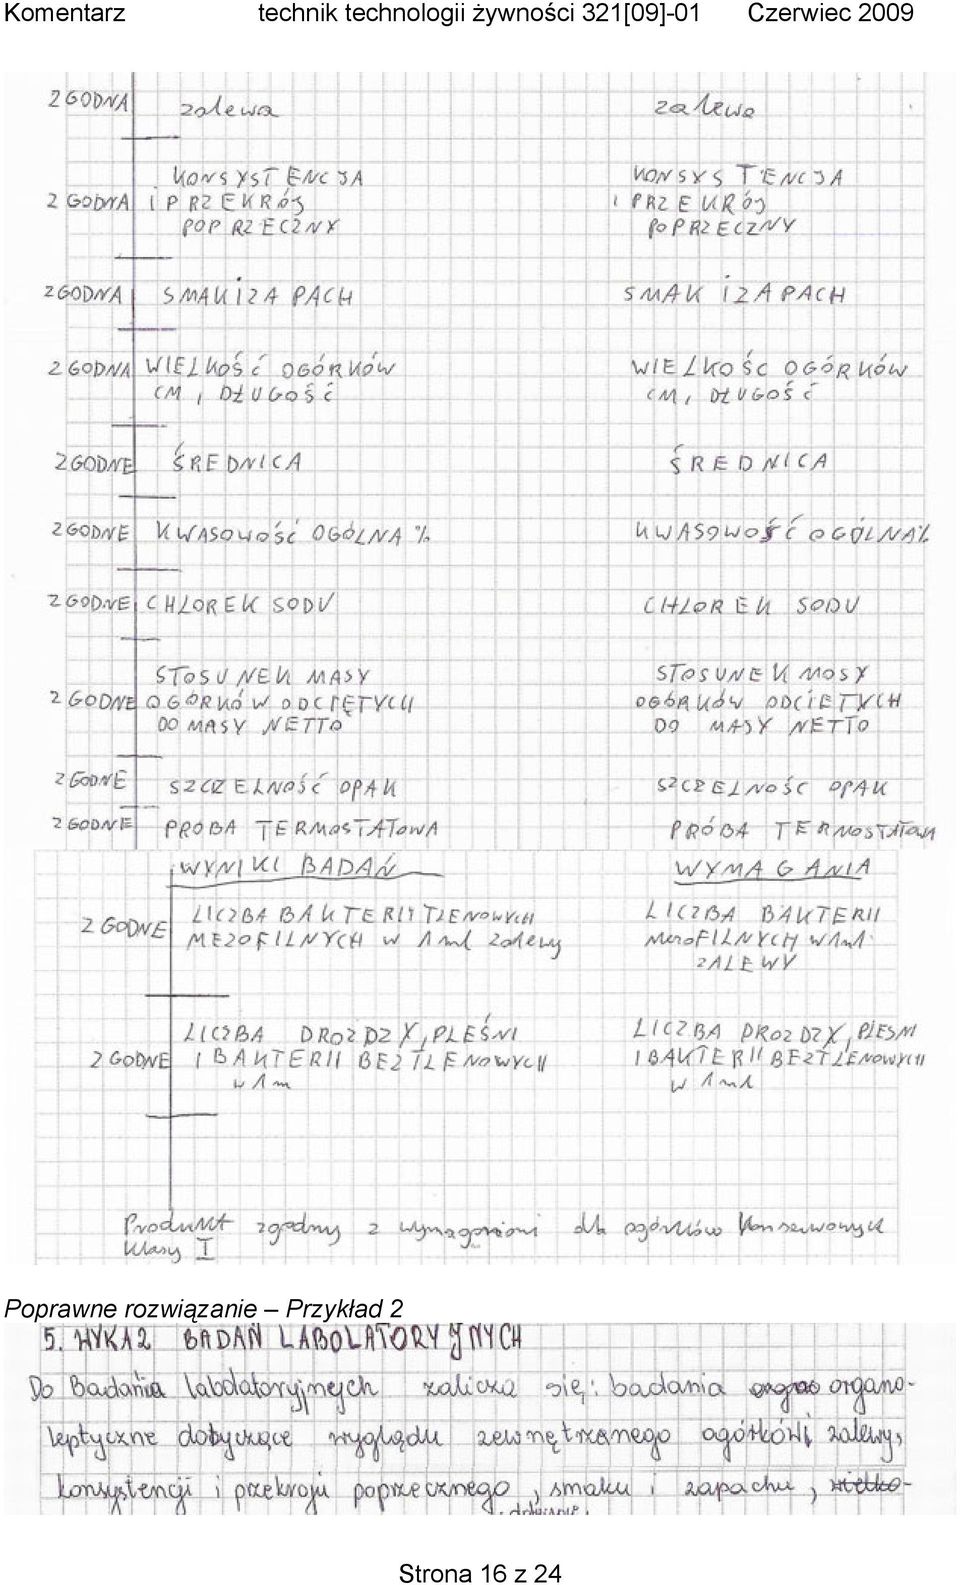 Komentarz technik technologii żywności 321[09]-01 Czerwiec 2009
ZGODNA zalewa zalewa
KONSYSTENCJA KONSYSTENCJA
ZGODNA I PRZEKRÓJ I PRZEKRÓJ
POPRZECZNY POPRZECZNY
ZGODNA SMAK I ZAPACH SMAK I ZAPACH
ZGODNA WIELKOŚĆ OGÓRKÓW WIELKOŚĆ OGÓRKÓW
CM, DŁUGOŚĆ CM, DŁUGOŚĆ
ZGODNE ŚREDNICA ŚREDNICA
ZGODNE KWASOWOŚĆ OGÓLNA % KWASOWOŚĆ OGÓLNA %
ZGODNE CHLOREK SODU CHLOREK SODU
STOSUNEK MASY STOSUNEK MOSY
ZGODNE OGÓRKÓW ODCIĘTYCH OGÓRKÓW ODCIETYCH
DO MASY NETTO DO MASY NETTO
ZGODNE SZCZELNOŚĆ OPAK SZCZELNOŚC OPAK
ZGODNE PRÓBA TERMOSTATOWA PRÓBA TERMOSTATOWA
WYNIKI BADAŃ WYMAGANIA
LICZBA BAKTERII TLENOWYCH LICZBA BAKTERII
ZGODNE MEZOFILNYCH w 1 ml zalewy MezoFILNYCH W 1ml
ZALEWY
LICZBA DROZDZY, PLEŚNI LICZBA DROZDZY, PLESNI
ZGODNE I BAKTERII BEZTLENOWYCH I BAKTERII BEZTLENOWYCH
w 1 m w 1 ml
Produkt zgodny z wymaganiami dla ogórków konserwowych
klasy I
Poprawne rozwiązanie – Przykład 2
5. WYKAZ BADAŃ LABOLATORYJNYCH
Do Badania labolatoryjnych zalicza się: badania organo-
leptyczne dotyczące wyglądu zewnętrzanego ogórków i zalewy,
konsystencji i przekroju poprzecznego, smaku i zapachu, wielko-
Strona 16 z 24